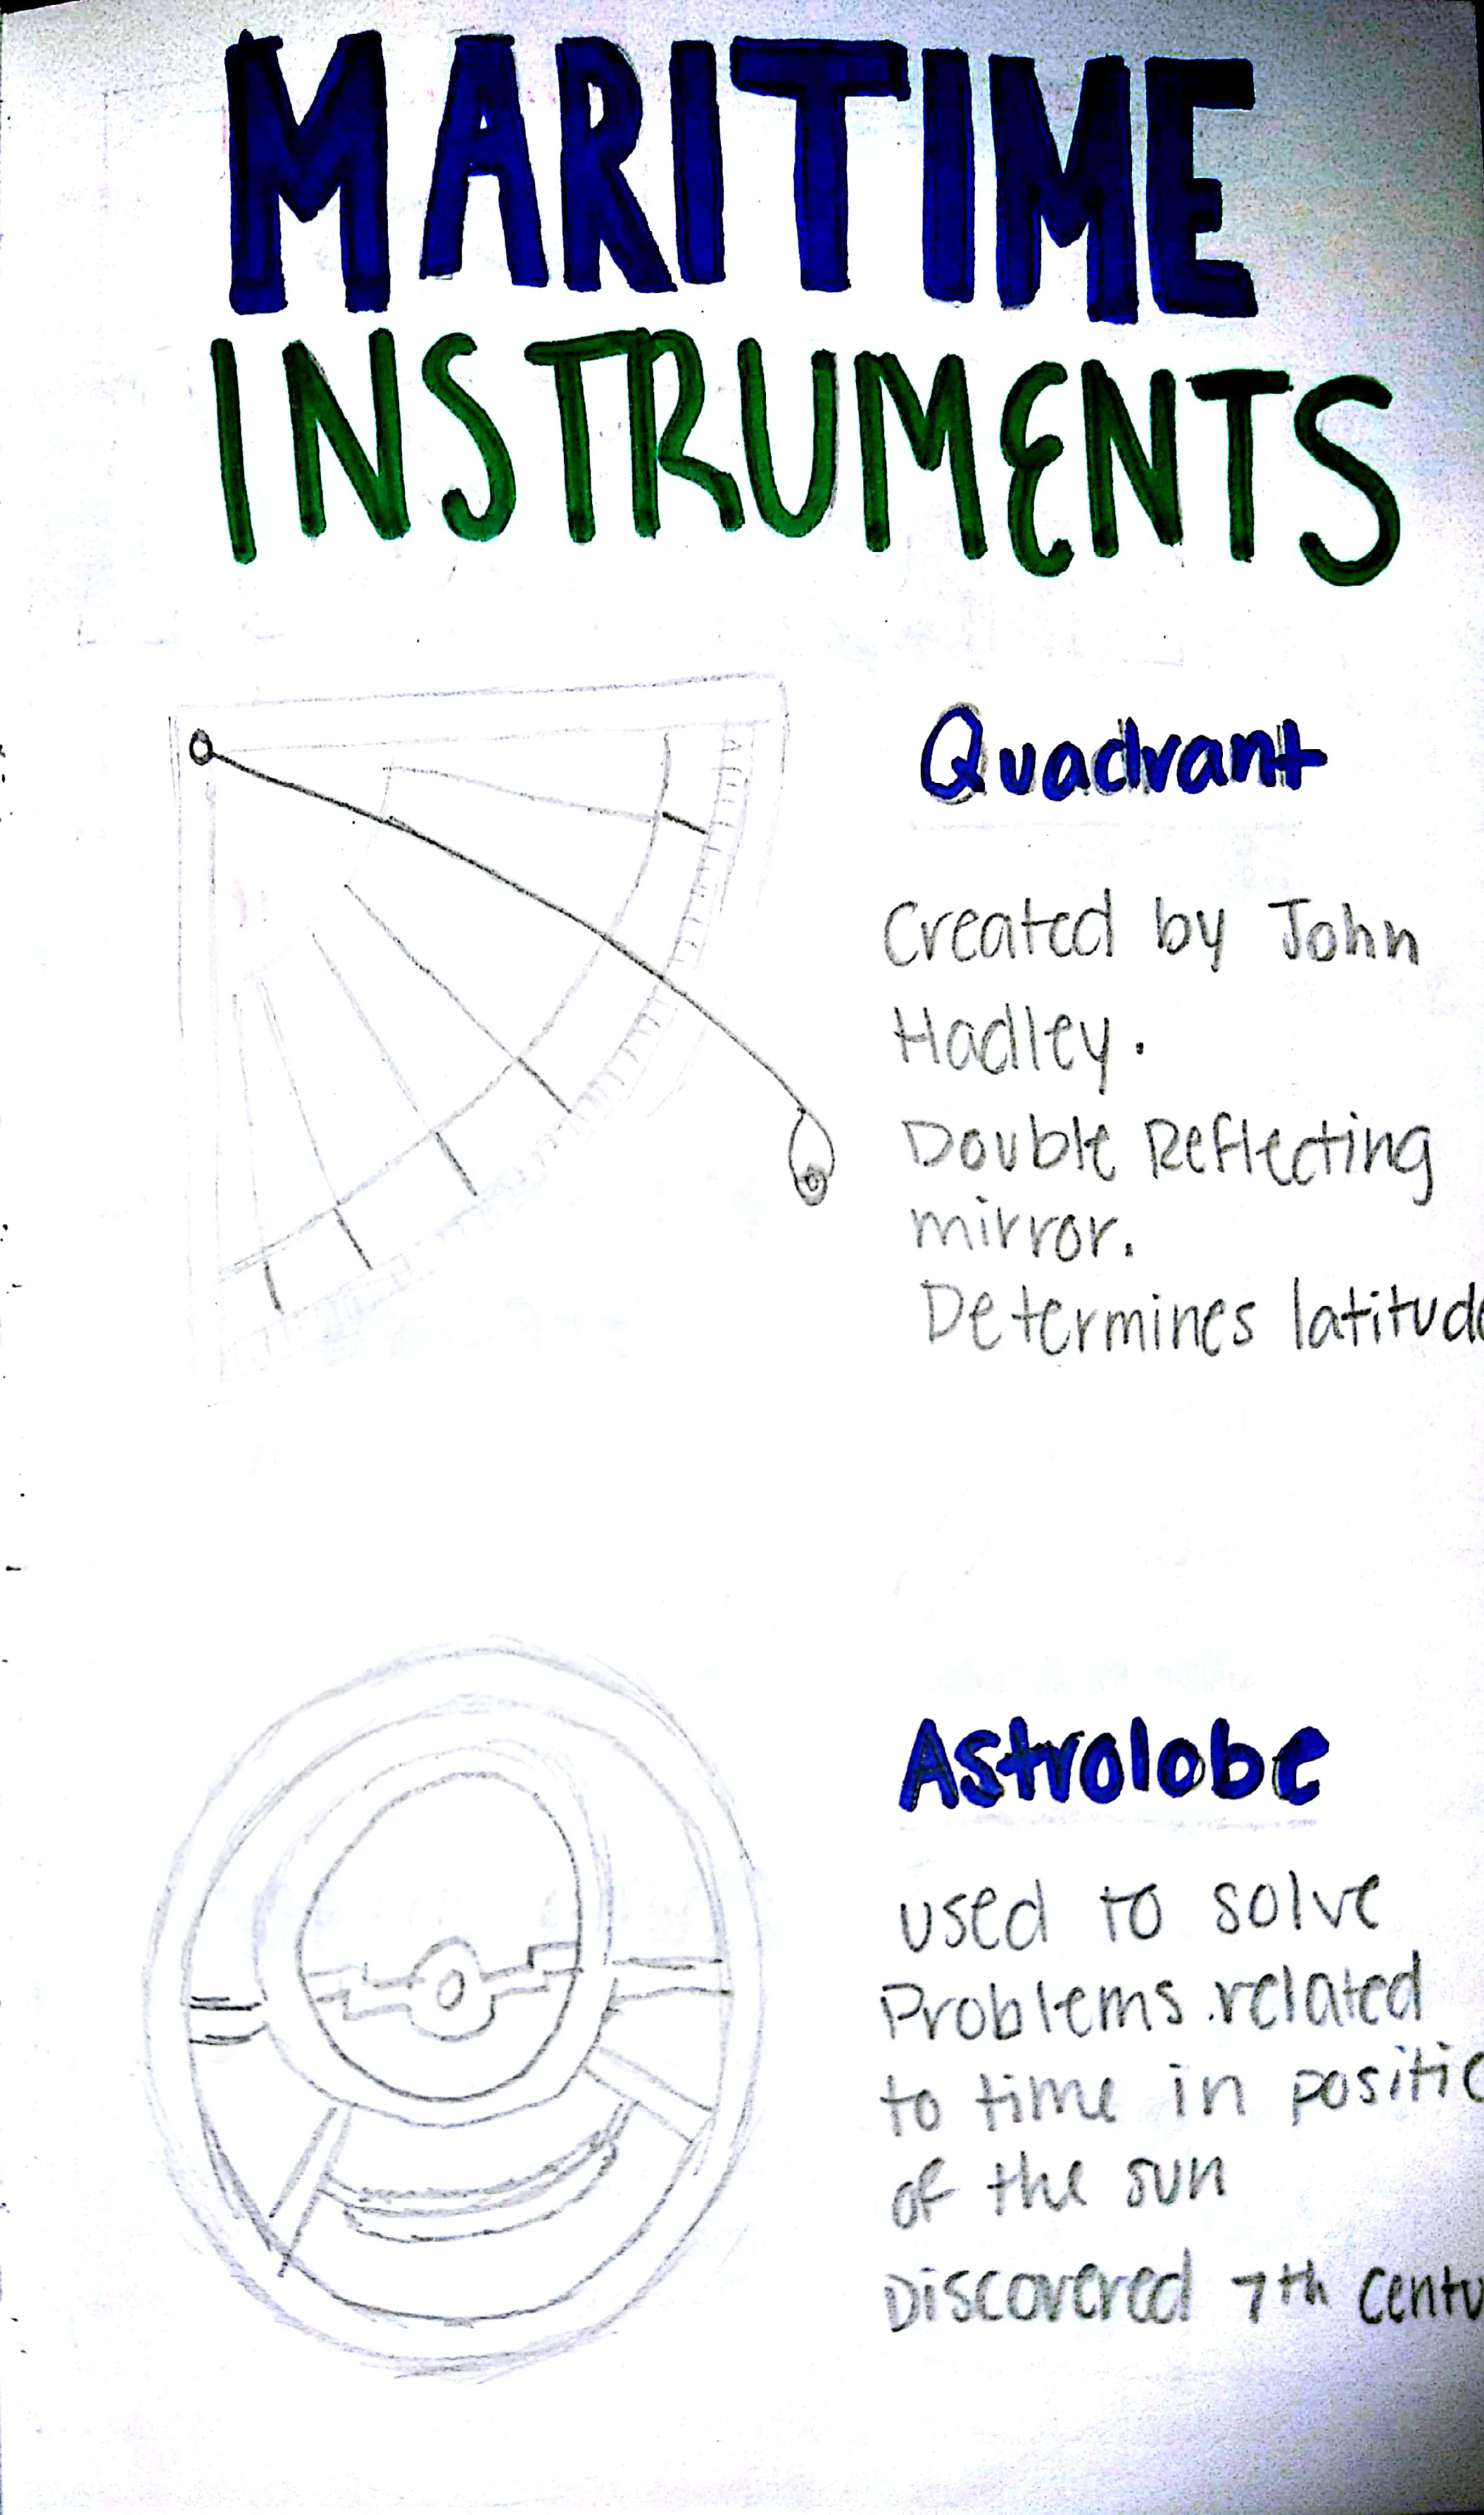 MARITIME
INSTRUMENTS
Quadrant
Created by John
Hadley.
Double Reflecting
mirror.
Determines latitude
Astrolobe
used to solve
Problems related
to time in positio
of the sun
Discovered 7th centu